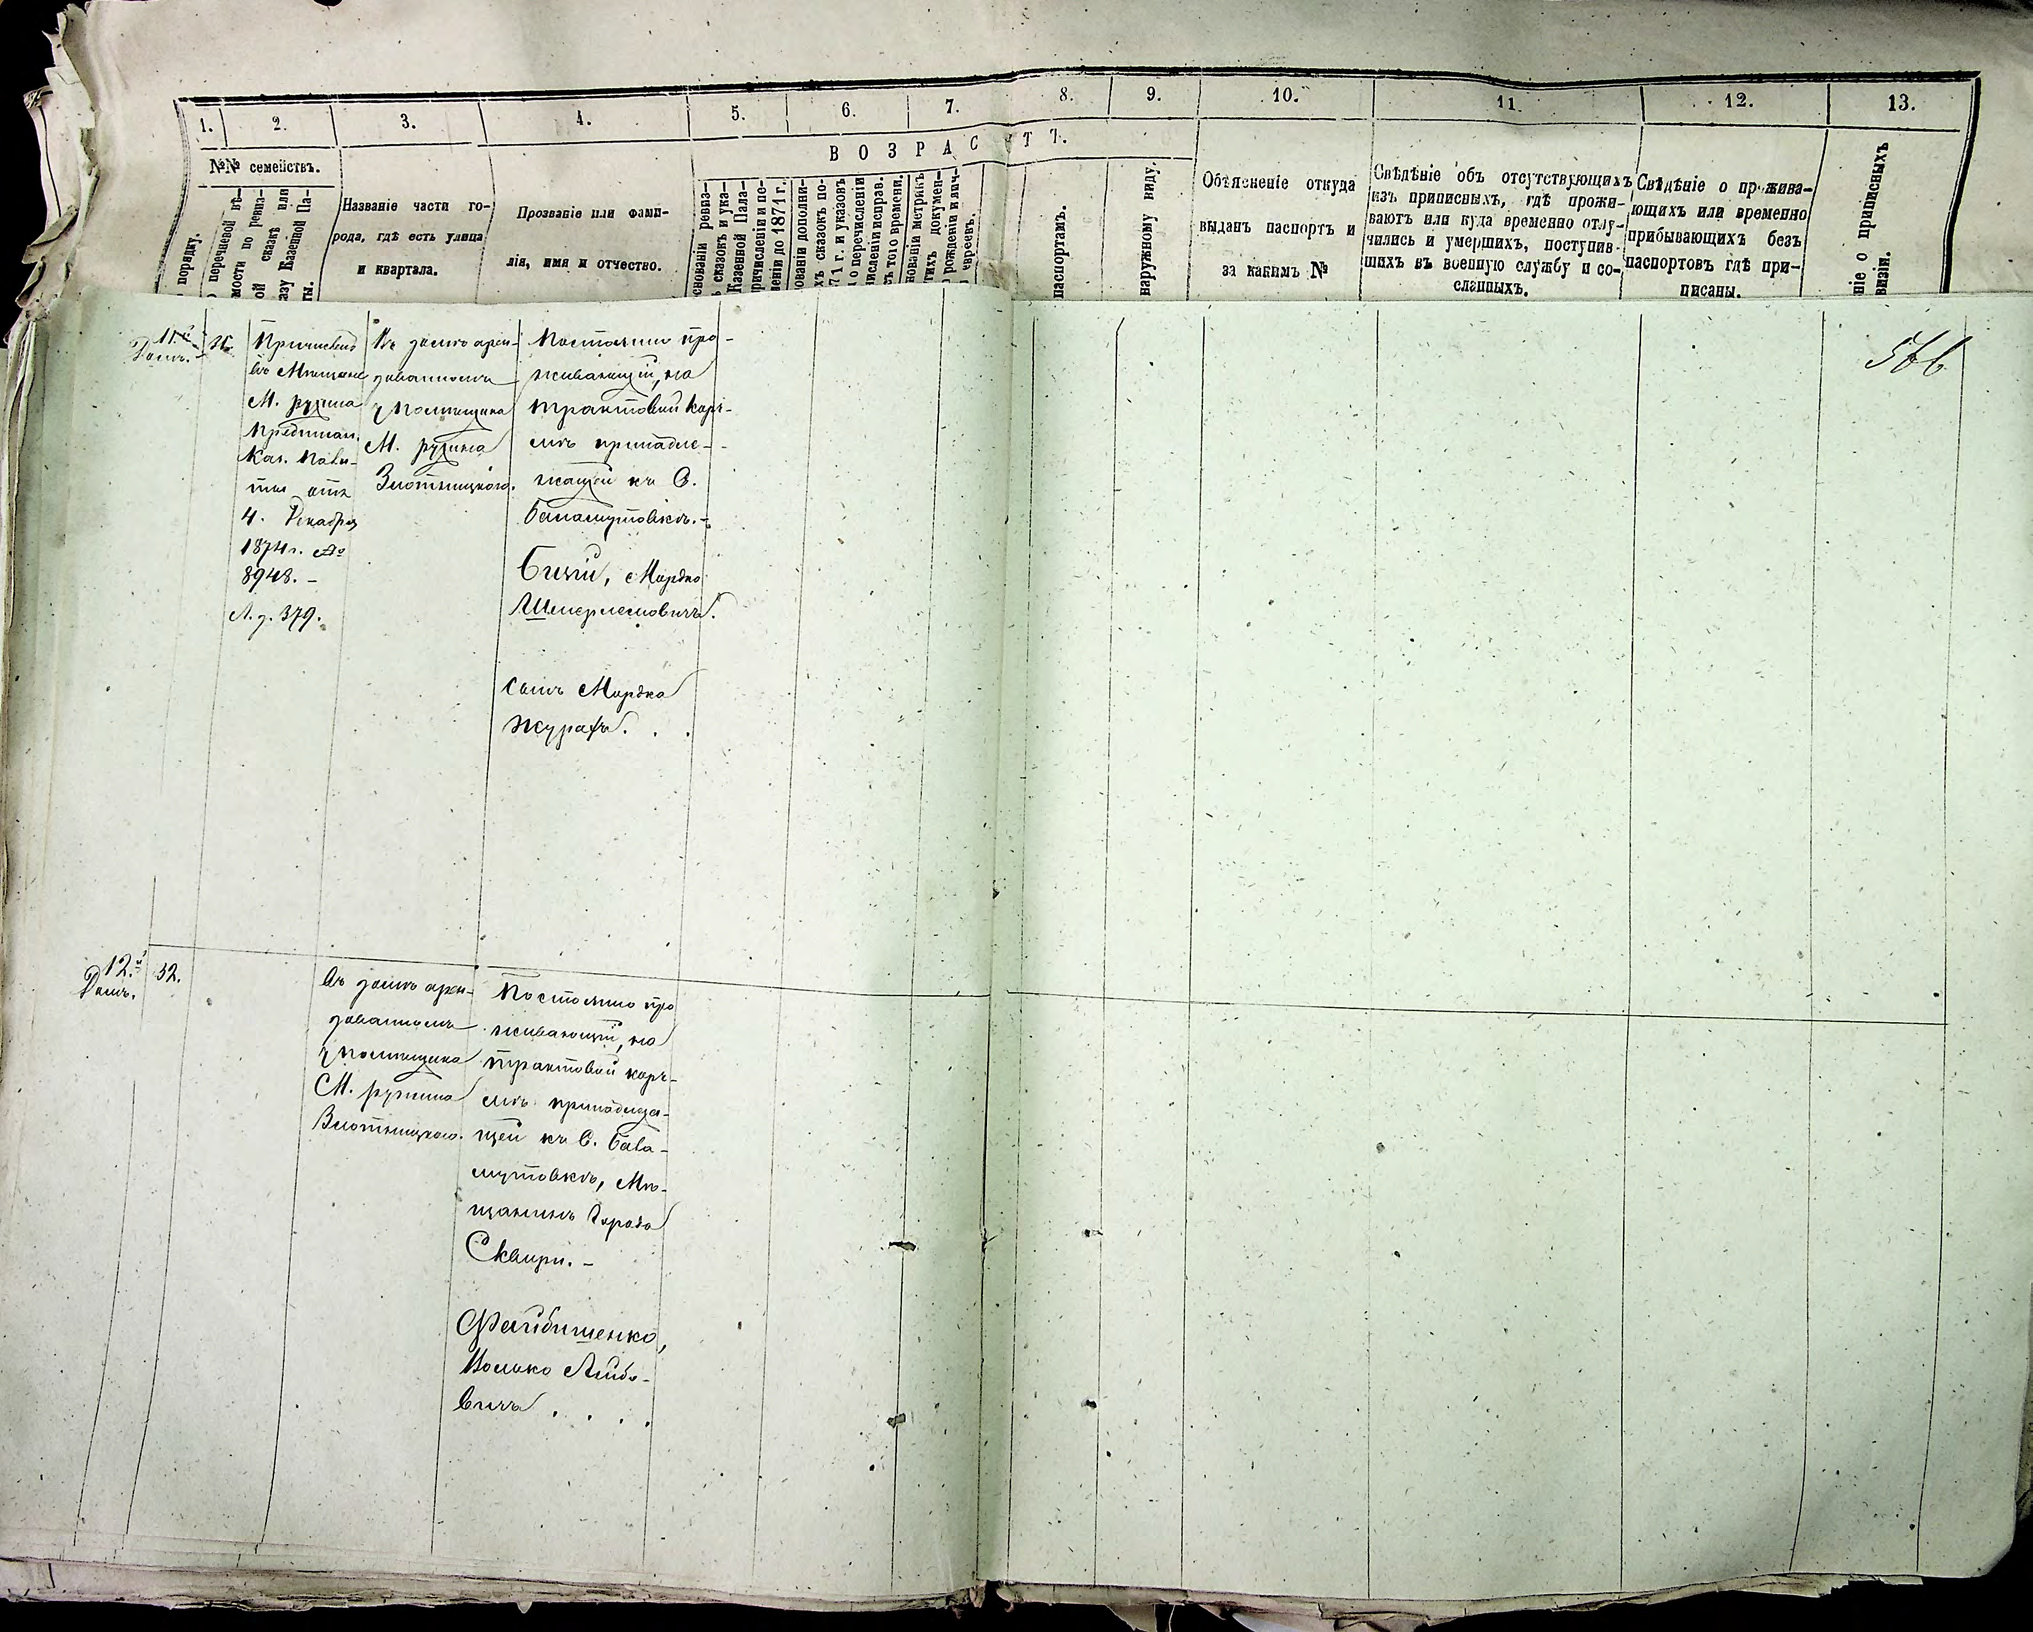 1. 2. 3. 4. 5. 6. 7. 8. 9. 10. 11. 12. 13.
№№ семействъ.
порядку.
перечневой вѣ-
мости по ревиз-
ой сказкѣ или
азу Казенной Па-
ты.
Названіе части го-
рода, гдѣ есть улица
и квартала.
Прозваніе или фами-
лія, имя и отчество.
ВОЗРАСТЪ.
снованіи ревиз-
ъ сказокъ и ука-
Казенной Пала-
причисленіи и по-
леніи до 1871 г.
ованіи дополни-
хъ сказокъ по-
71 г. и указовъ
о перечисленіи
численіи исправ.
сть того времени.
нованіи метрикъ
гихъ докумен-
рожденіи и вич-
евреевъ.
паспортамъ.
наружному виду.
Объясненіе откуда
выданъ паспортъ и
за какимъ №
Свѣдѣніе объ отсутствующихъ
изъ приписныхъ, гдѣ прожи-
ваютъ или куда временно отлу-
чились и умершихъ, поступив-
шихъ въ военную службу и со-
сланныхъ.
Свѣдѣніе о прожива-
ющихъ или временно
прибывающихъ безъ
паспортовъ гдѣ при-
писаны.
ніе о приписныхъ
визіи.
11.й
Домъ.
Въ Мѣщане
М. ружина
Предпис.
Каз. Пала-
ты отъ
4. Декабря
1874 г. №
8948. –
Л. д. 379.
Въ домѣ арен-
дованномъ
у помѣщика
М. ружина
Злотницкого.
Постоянно про-
живающій, на
трактовой корч-
мѣ принадле-
жащей къ С.
Баламутовкѣ. –
Бицій, Мордко
Шмерлемовичъ.
сынъ Мордка
566
12.й
Домъ.
52.
Въ домѣ арен-
дованномъ
у помѣщика
М. ружина
Злотницкого.
Постоянно про
живающій, на
трактовой корч-
мѣ принадлежа-
щей къ С. Бала-
мутовкѣ, Мѣ-
щанинъ Города
Сквири. –
Файбишенко,
Волько Лейбо-
вичъ . . . .